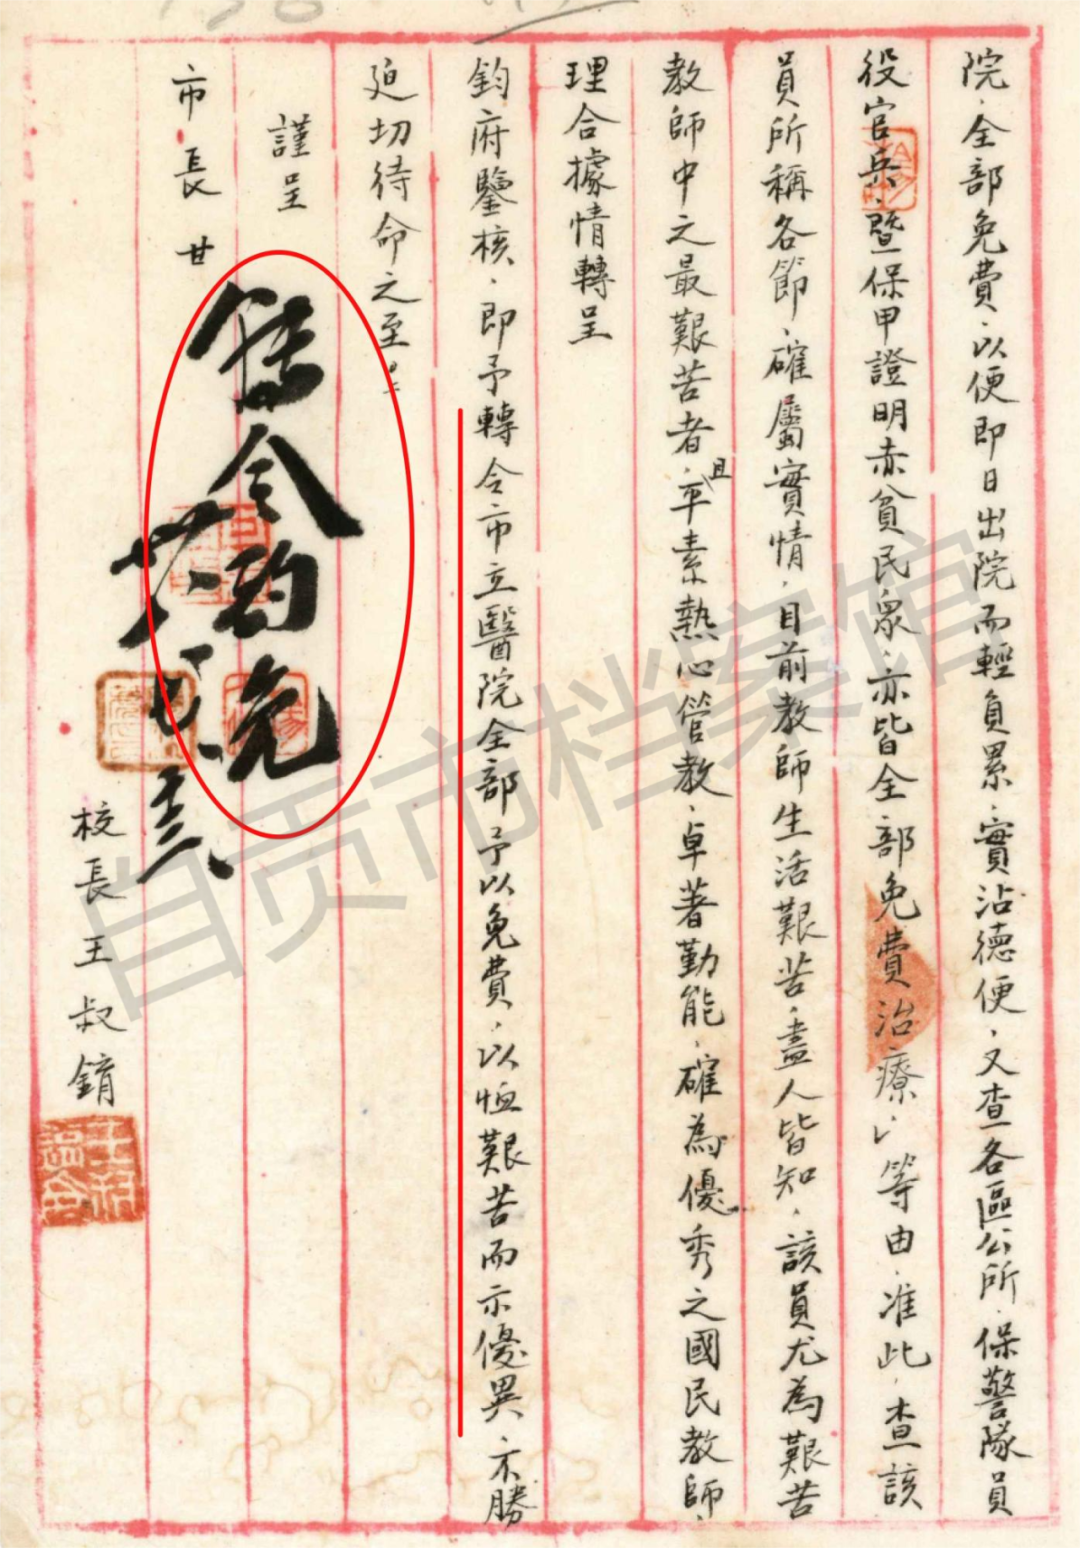 院、全部免費、以便即日出院而輕負累、實沾德便、又查各區公所、保警隊員
役官兵、暨保甲證明赤貧民眾、亦皆全部免費治療、」等由、准此、查該
員所稱各節、確屬實情、目前教師生活艱苦、盡人皆知、該員尤為艱苦
教師中之最艱苦者、且平素熱心管教、卓著勤能、確為優秀之國民教師、
理合據情轉呈
鈞府鑒核、即予轉令市立醫院全部予以免費、以恤艱苦而示優異、不勝
迫切待命之至!
謹呈
市長 甘
轉令酌免
校長 王叔錥
自贡市档案馆